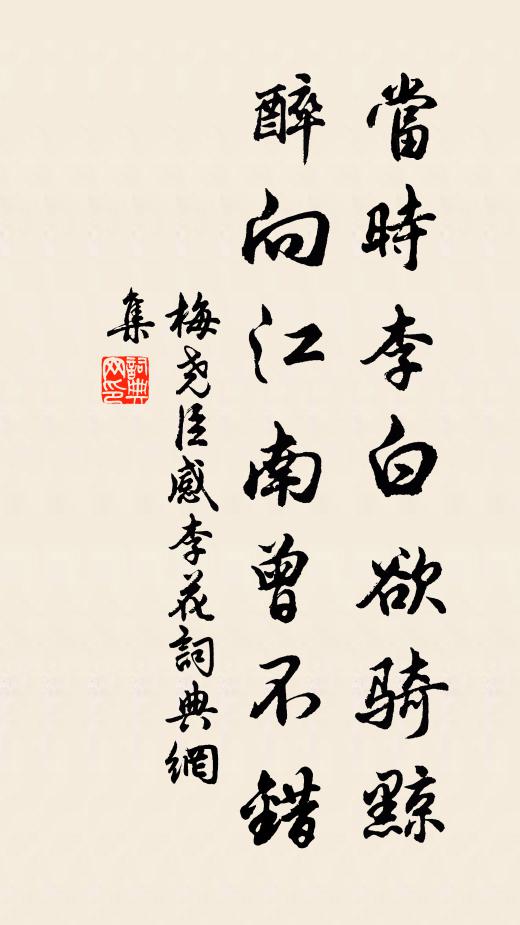 當時李白欲騎黥
醉向江南曾不錯
梅堯臣感李花詞典網
集
詞典网印